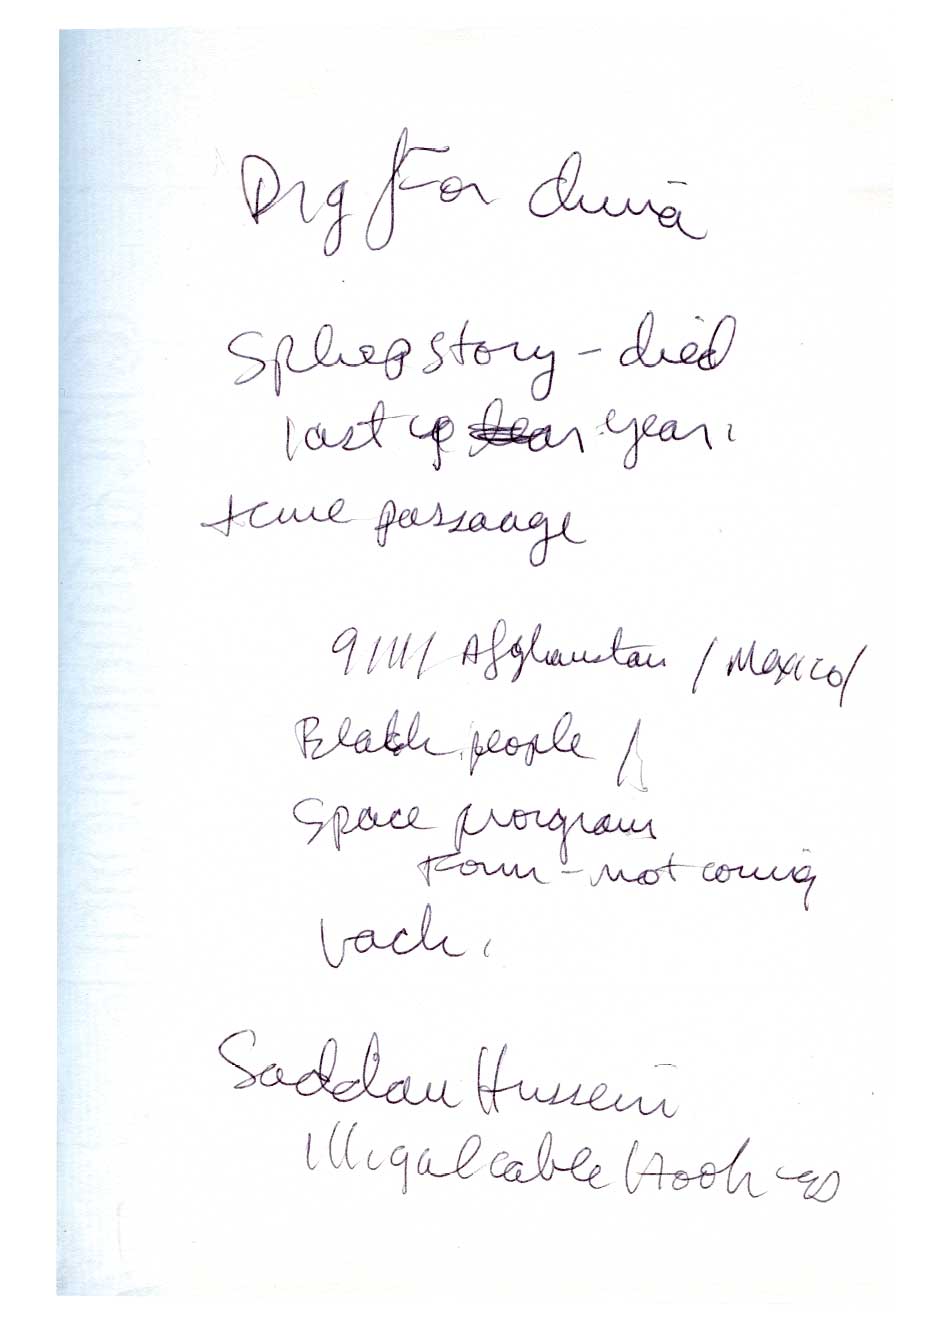 Dig For China
Sphep story - died
last year.
time passaage
9/11/ Afghanistan / Mexico/
Black people /
Space program
form - not coming
back.
Saddam Hussein
illigal cable Hook-up